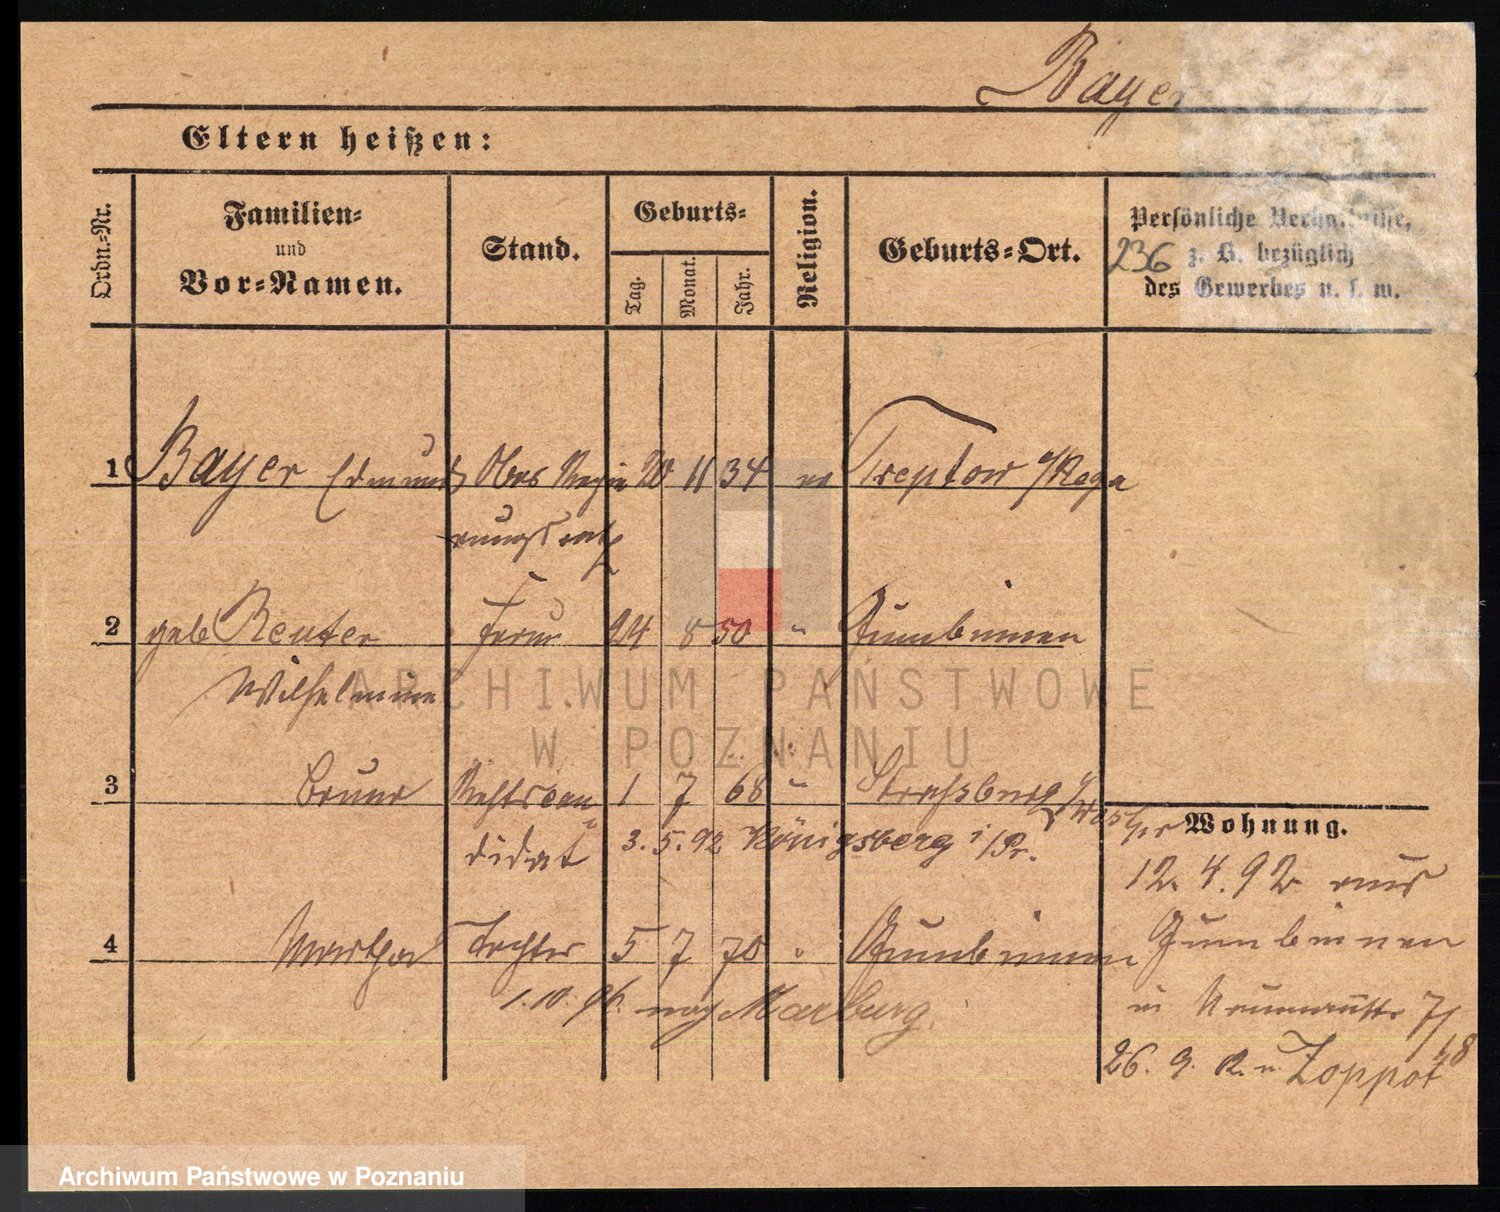 Bayer
Eltern heißen:
Ordn.-Nr.
Familien-
und
Vor-Namen.
Stand.
Geburts-
Tag.
Monat.
Jahr.
Religion.
Geburts-Ort.
Persönliche Verhältnisse,
236 z. B. bezüglich
des Gewerbes u. s. w.
1 Bayer Edmund Ober Regie 20 11 34 ev Treptow a/Rega
rungsrath
2 geb Reuter Frau 24 8 50 " Gumbinnen
Wilhelmine
3 Bruno Rechtscan 1 7 68 " Strassburg
didat 3. 5. 92 Königsberg i/Pr.
4 Martha Tochter 5 7 70 " Gumbinnen
1. 10. 96. nach Marburg.
Wohnung.
12. 4. 92 aus
Gumbinnen
26. 9. R. n. Zoppot
ARCHIWUM PAŃSTWOWE
W POZNANIU
Archiwum Państwowe w Poznaniu